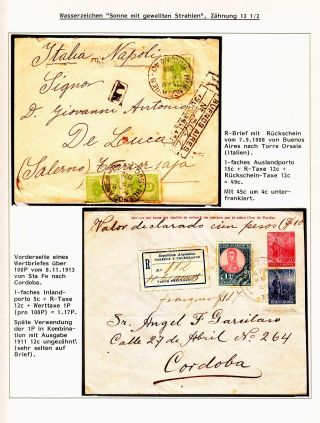 Wasserzeichen "Sonne mit gewellten Strahlen", Zähnung 13 1/2
Italia Napoli
Signor
D. Giovanni Antonio
De Luca
(Salerno)
R-Brief mit Rückschein
vom 7.9.1908 von Buenos
Aires nach Torre Orsaia
(Italien).
1-faches Auslandporto
15c + R-Taxe 12c +
Rückschein-Taxe 12c
= 49c.
Mit 45c um 4c unter-
frankiert.
Vorderseite eines
Wertbriefes über
100P vom 8.11.1913
von Sta Fe nach
Cordoba.
1-faches Inland-
porto 5c + R-Taxe
12c + Werttaxe 1P
(pro 100P) = 1.17P.
Späte Verwendung
der 1P in Kombina-
tion mit Ausgabe
1911 12c ungezähnt!
(sehr selten auf
Brief).
Valor declarado cien pesos
República Argentina
CORREOS Y TELEGRAFOS
R
VALOR DECLARADO
Sr. Angel F Garzilaso
Calle 27 de Abril No 264
Cordoba